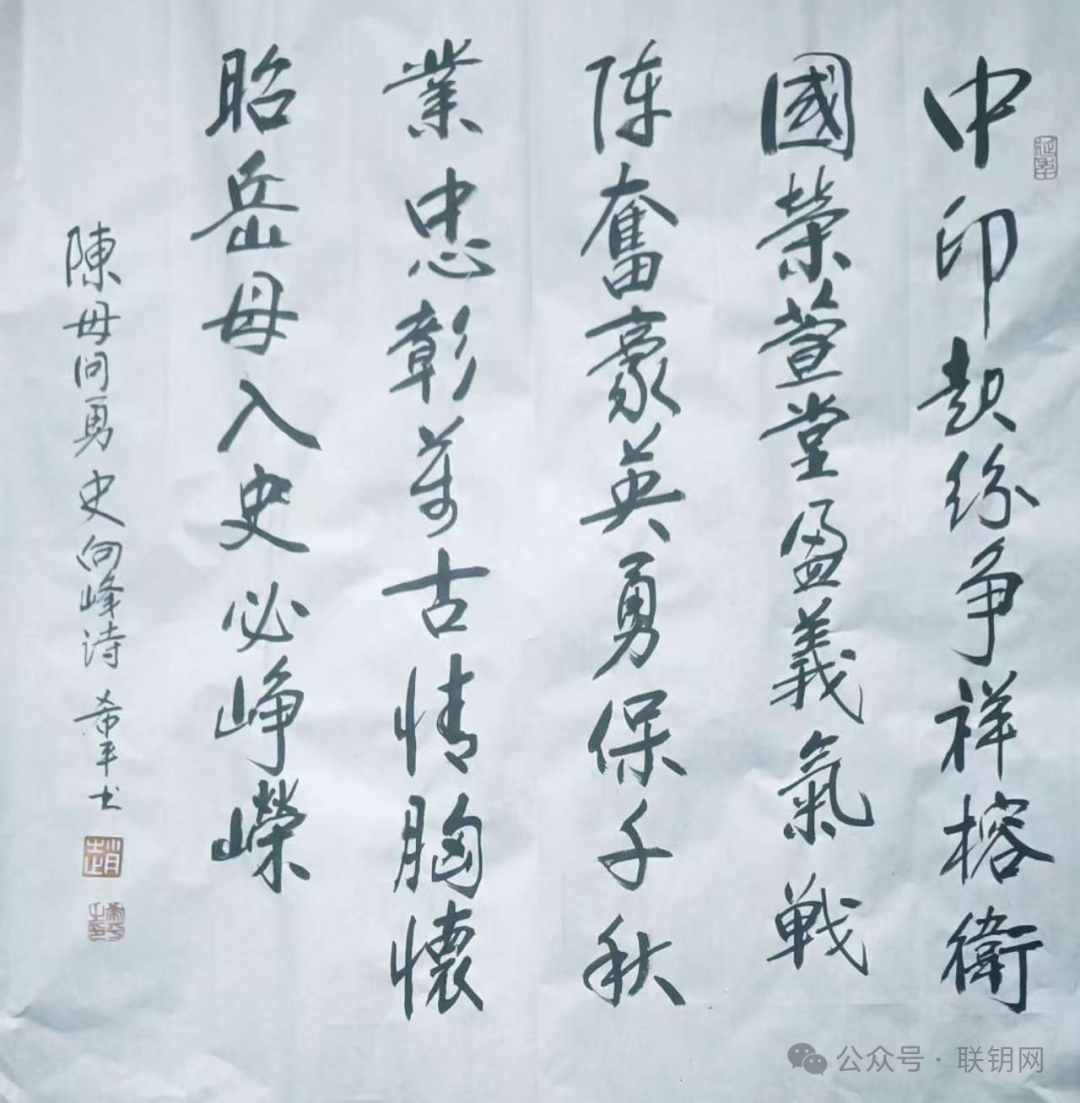 中印起纷争祥榕衛
國榮萱堂盈義氣戰
陣奮豪英勇保千秋
業忠彰萬古情胸懷
昭岳母入史必崢嶸
陳母问勇 史向峰诗 希平书
公众号·联钥网